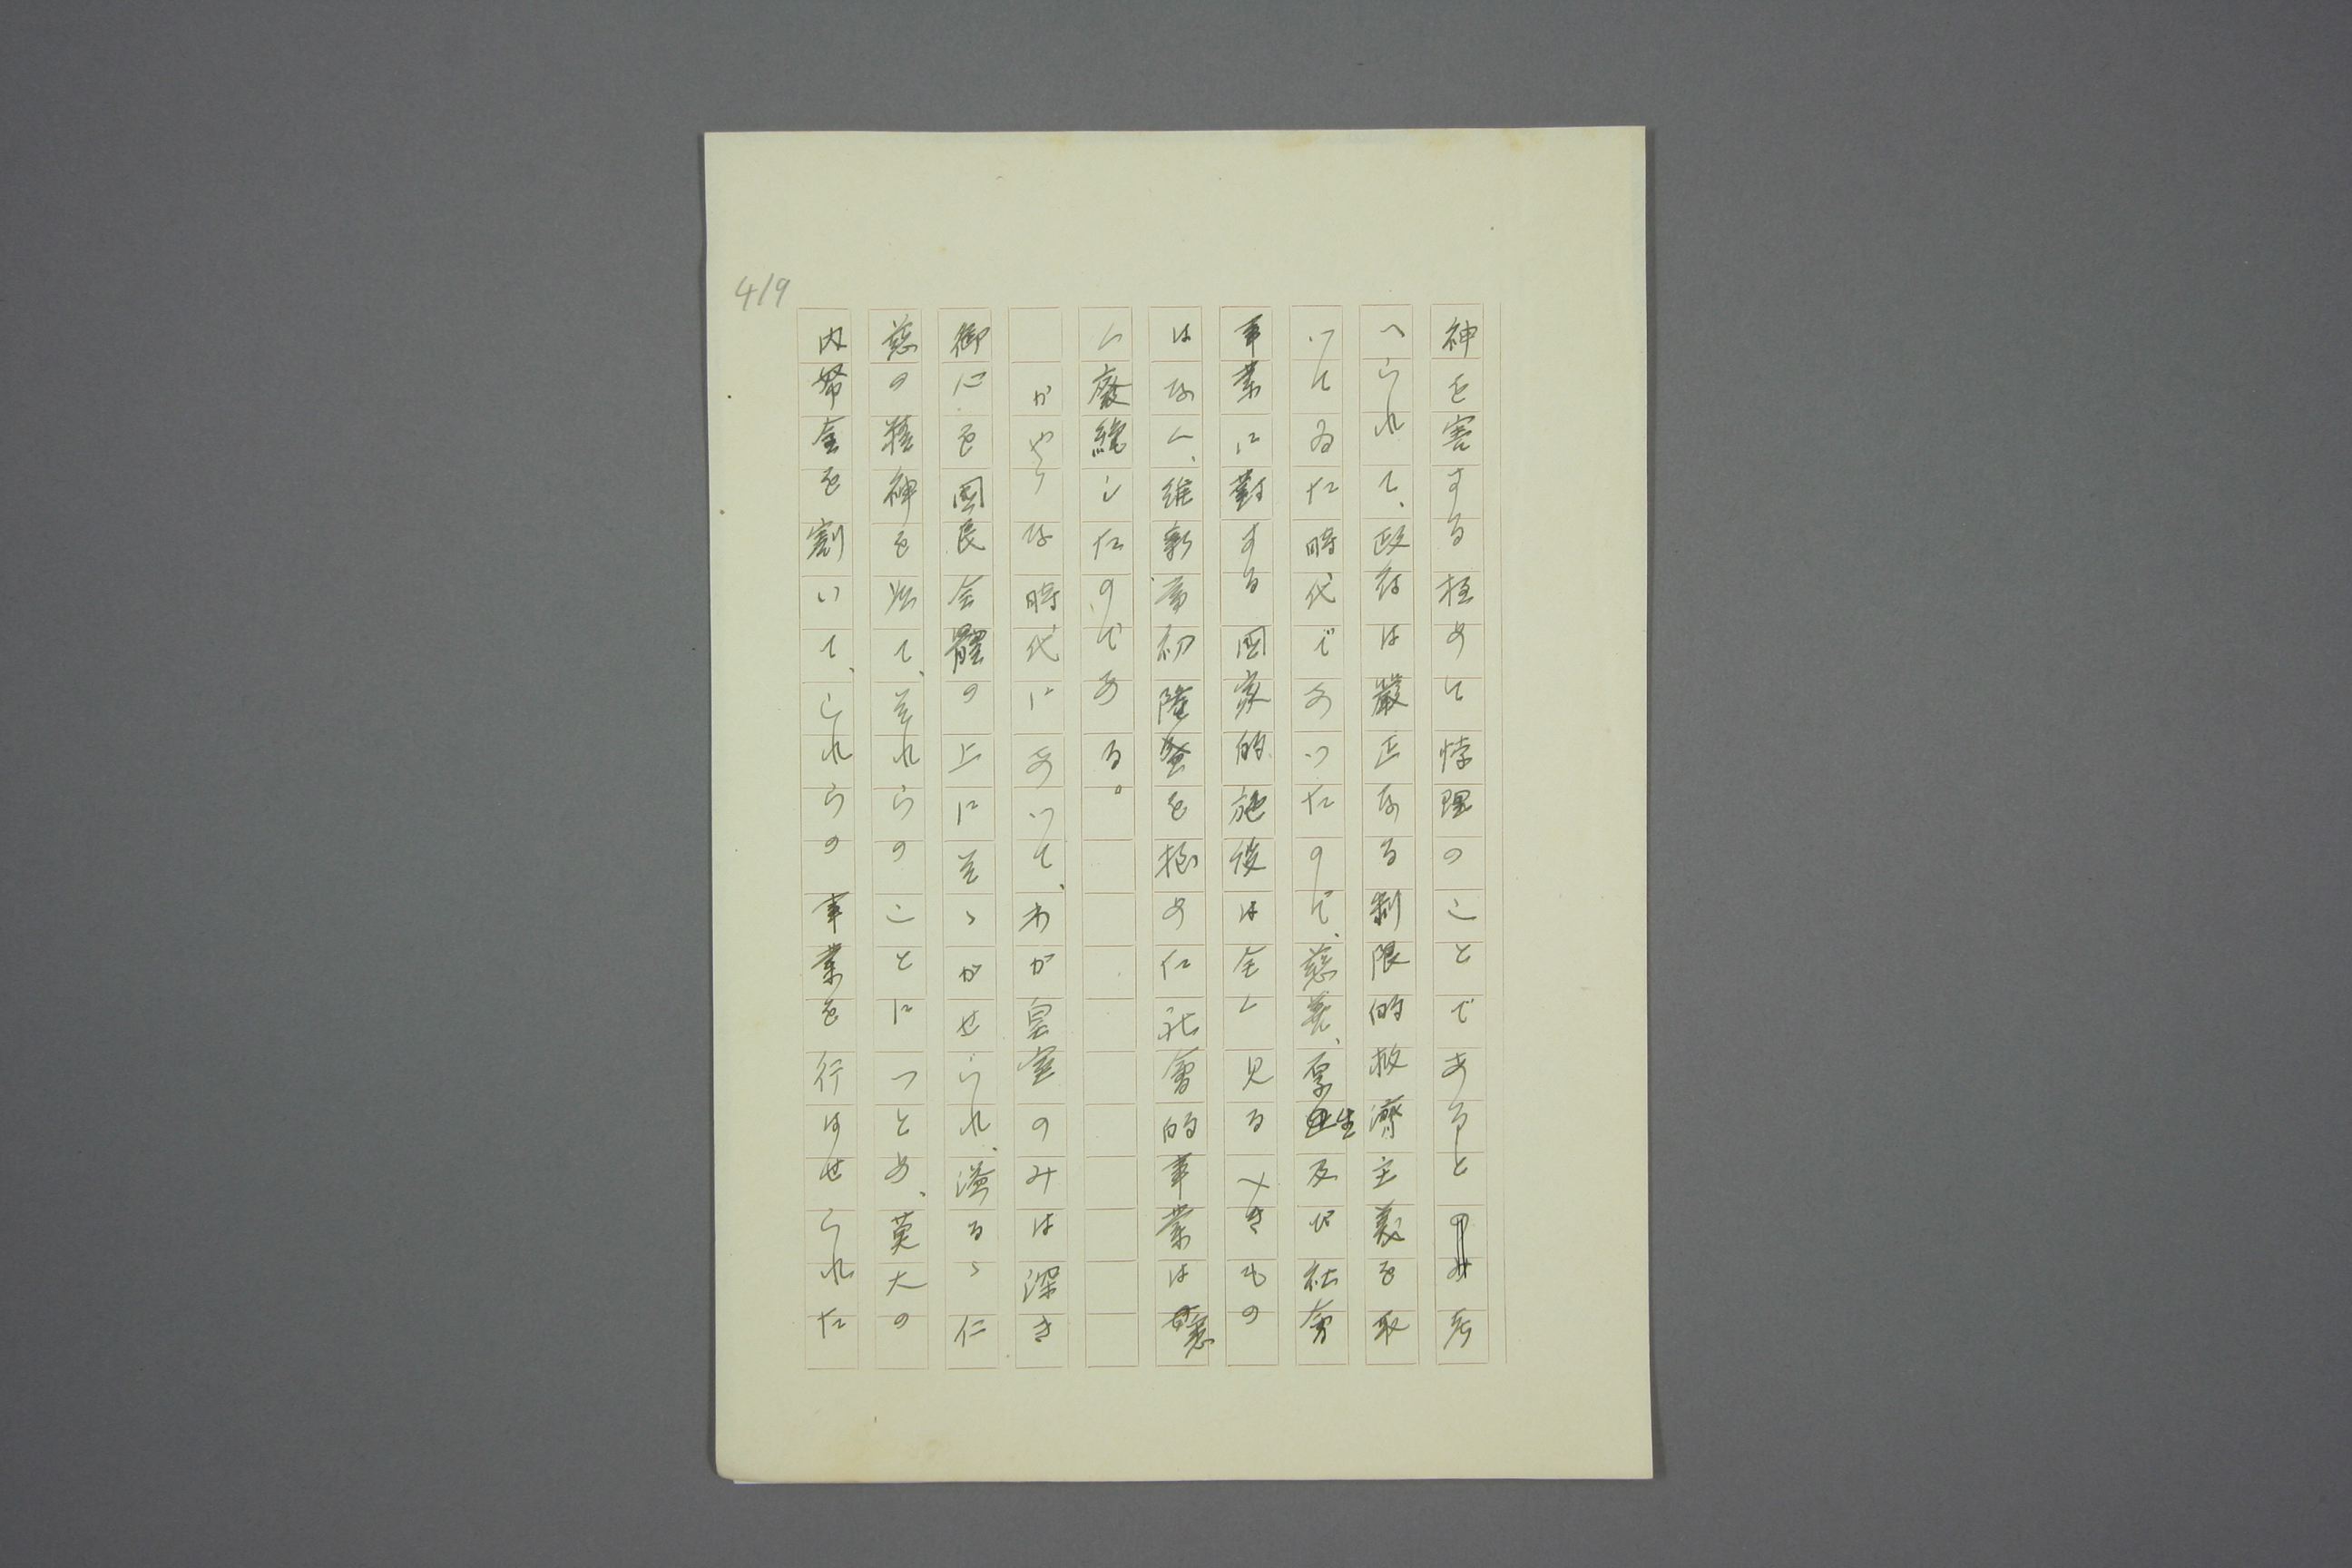 419
神を害する極めて悖理のことであると考
へられて、政府は嚴正なる制限的救濟主義を取
つてゐた時代であつたので、慈善、厚生及び社會
事業に對する國家的施設は全く見るべきもの
はなく、維新當初隆盛を極めた社會的事業は
く廢絶したのである。
かやうな時代にあつて、わが皇室のみは深き
御心を國民全體の上にそゝがせられ、溢るゝ仁
慈の精神を以て、それらのことにつとめ、莫大の
内帑金を割いて、これらの事業を行はせられた